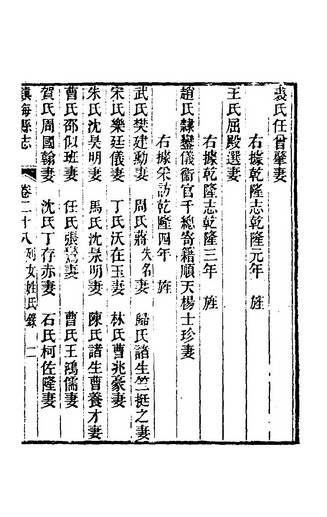 裘氏任曾肇妻
右據乾隆志乾隆元年 旌
王氏屈殿選妻
右據乾隆志乾隆三年 旌
趙氏隸鑾儀衞官千總寄籍順天楊士珍妻
右據采訪乾隆四年 旌
武氏樊建勳妻 周氏蔣失名妻 歸氏諸生竺挺之妻
宋氏樂廷儀妻 丁氏沃在玉妻 林氏曹兆豪妻
朱氏沈昊明妻 馬氏沈景明妻 陳氏諸生曹養才妻
曹氏邵似班妻 任氏張 妻 曹氏王鴻儒妻
賀氏周國翰妻 沈氏丁存赤妻 石氏柯佐隆妻
鎮海縣志 卷二十八 列女姓氏錄 二